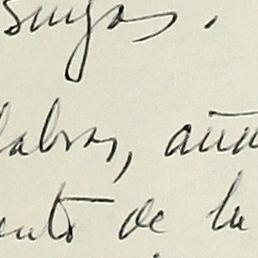 suyos.
labras, aún
ento de la